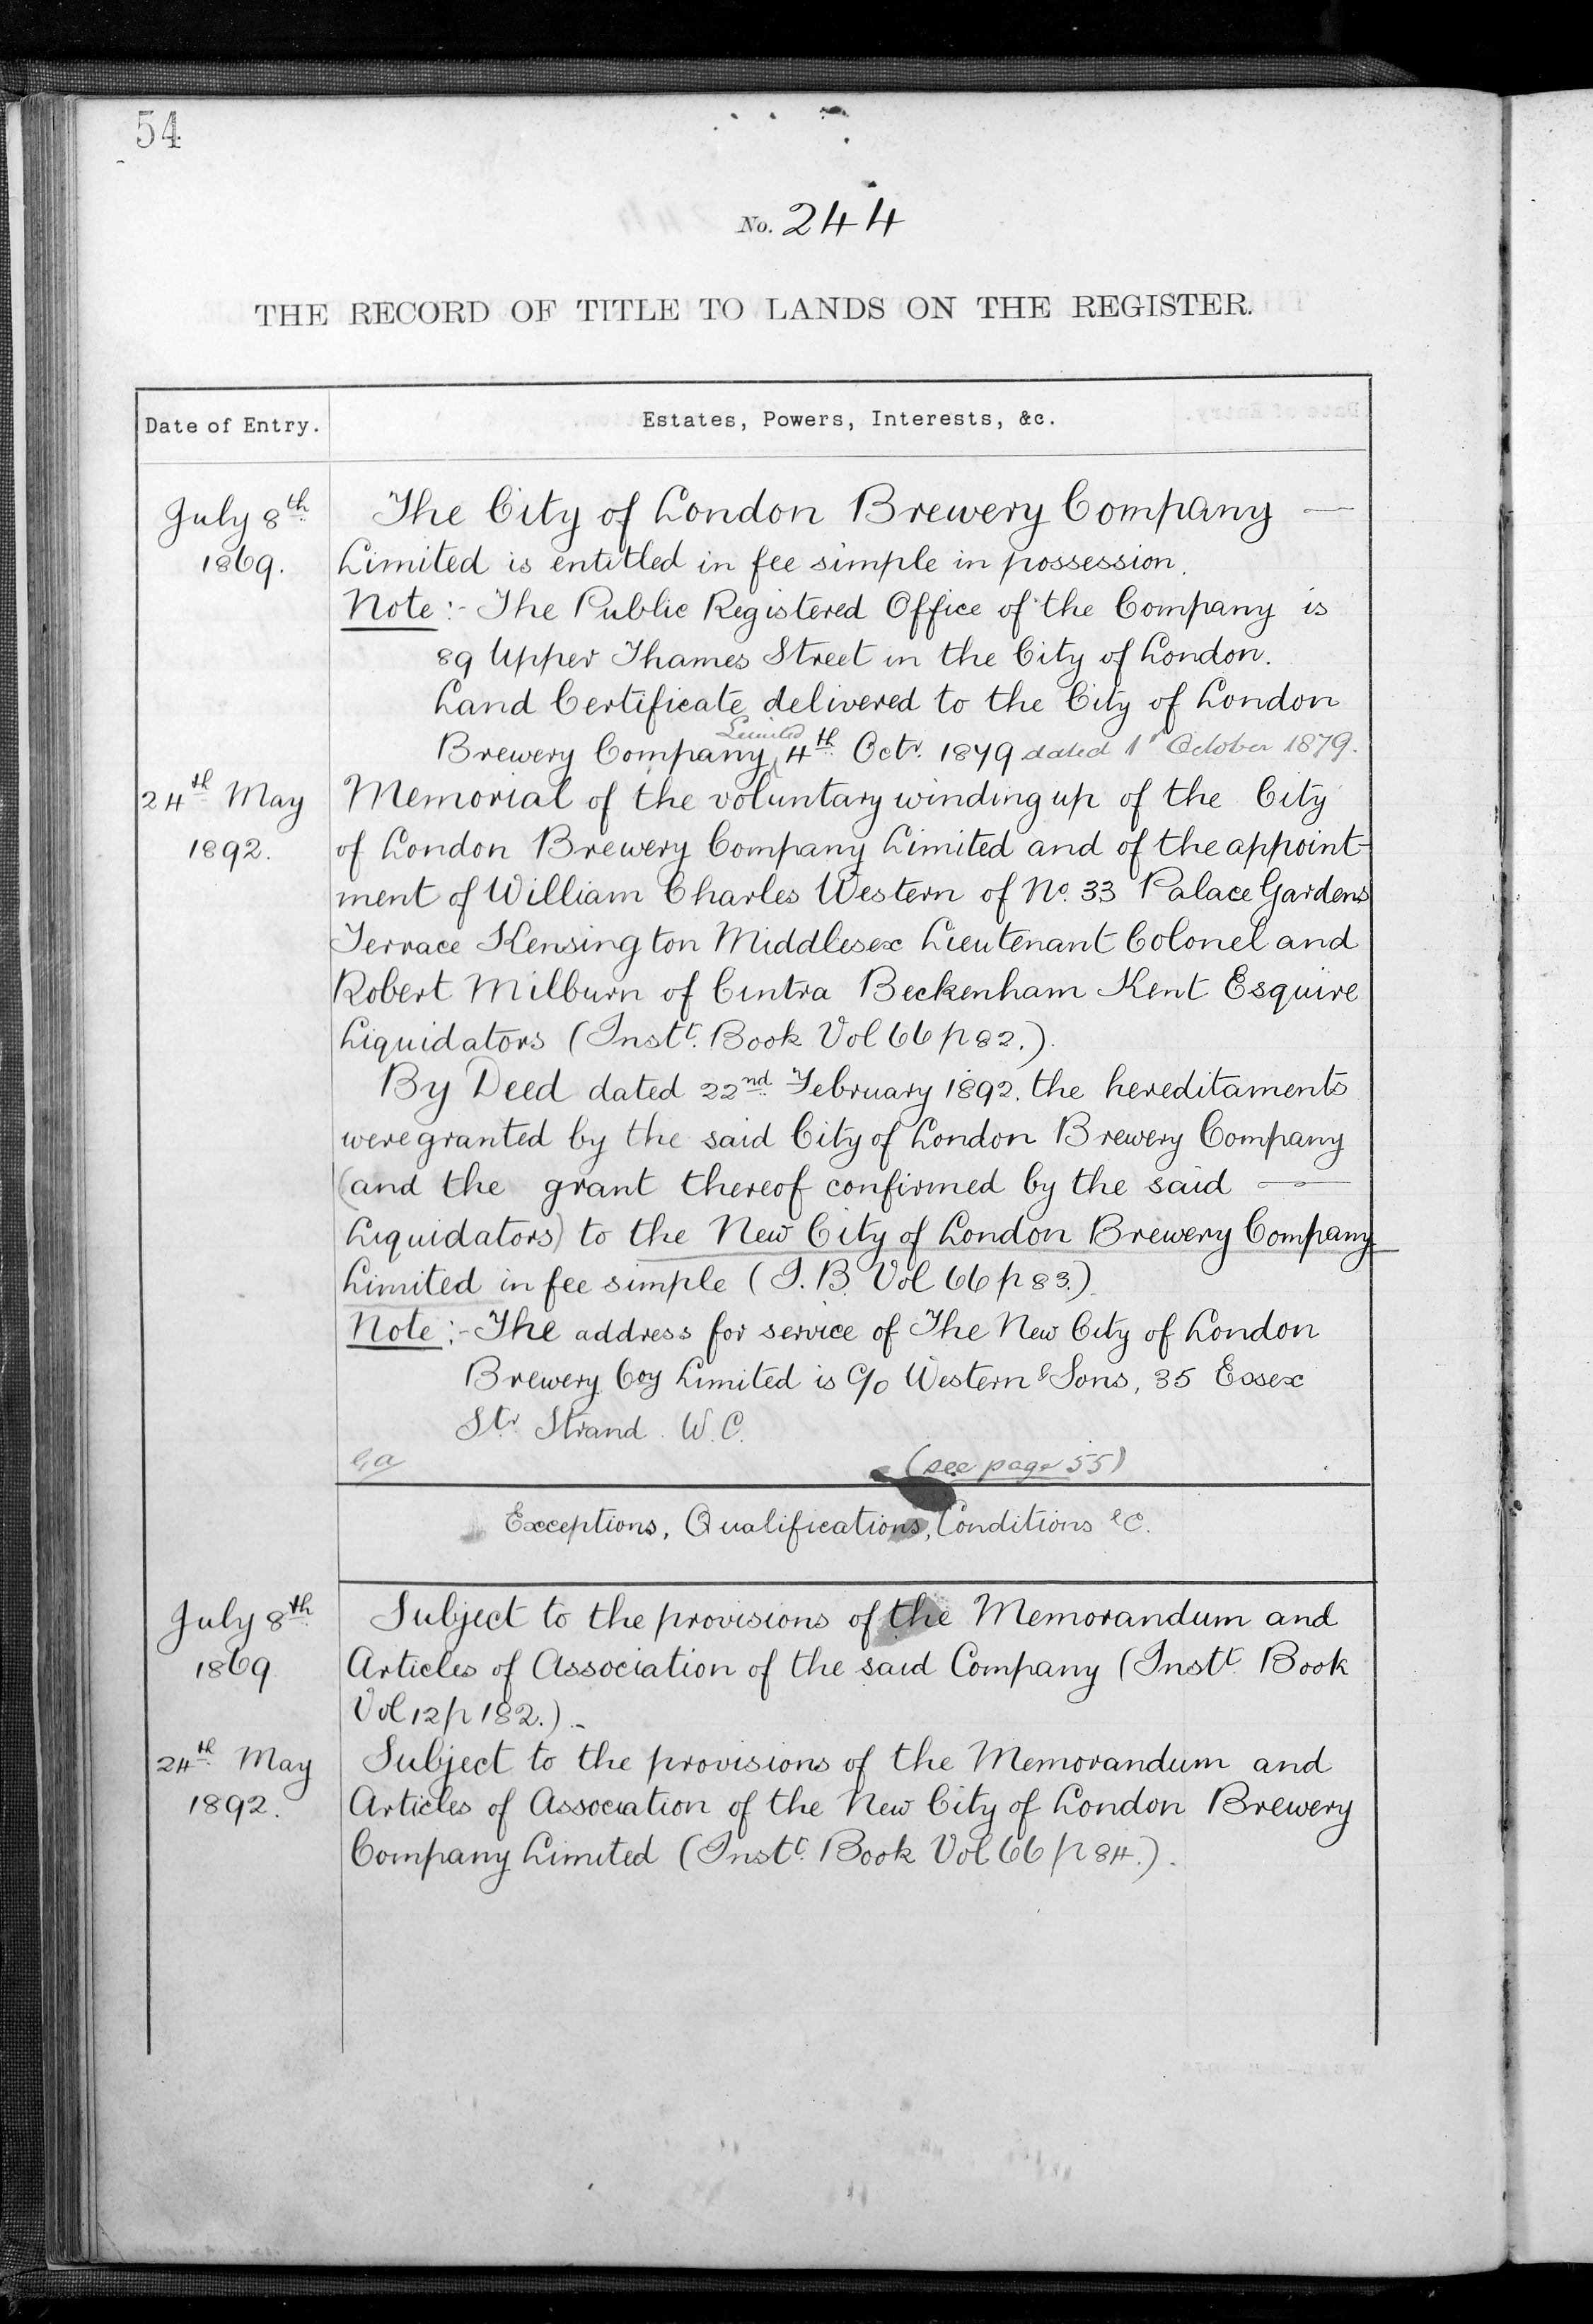 54
No. 244
THE RECORD OF TITLE TO LANDS ON THE REGISTER.
Date of Entry.
Estates, Powers, Interests, &c.
July 8th 1869.
The City of London Brewery Company
Limited is entitled in fee simple in possession.
Note:- The Public Registered Office of the Company is
89 Upper Thames Street in the City of London.
Land Certificate delivered to the City of London
Brewery Company Limited 4th Octr. 1879 dated 1st October 1879.
24th May 1892.
Memorial of the voluntary winding up of the City
of London Brewery Company Limited and of the appoint-
ment of William Charles Western of No. 33 Palace Gardens
Terrace Kensington Middlesex Lieutenant Colonel and
Robert Milburn of Cintra Beckenham Kent Esquire
Liquidators (Instt. Book Vol 66 p 82.).
By Deed dated 22nd February 1892. the hereditaments
were granted by the said City of London Brewery Company
(and the grant thereof confirmed by the said
Liquidators) to the New City of London Brewery Company
Limited in fee simple (I. B. Vol 66 p 83.).
Note:- The address for service of The New City of London
Brewery Coy Limited is C/o Western & Sons, 35 Essex
Str. Strand. W. C.
(see page 55)
Exceptions, Qualifications, Conditions &c.
July 8th 1869
Subject to the provisions of the Memorandum and
Articles of Association of the said Company (Instt. Book
Vol 12 p 182.).-
24th May 1892.
Subject to the provisions of the Memorandum and
Articles of Association of the New City of London Brewery
Company Limited (Instt. Book Vol 66 p 84.).